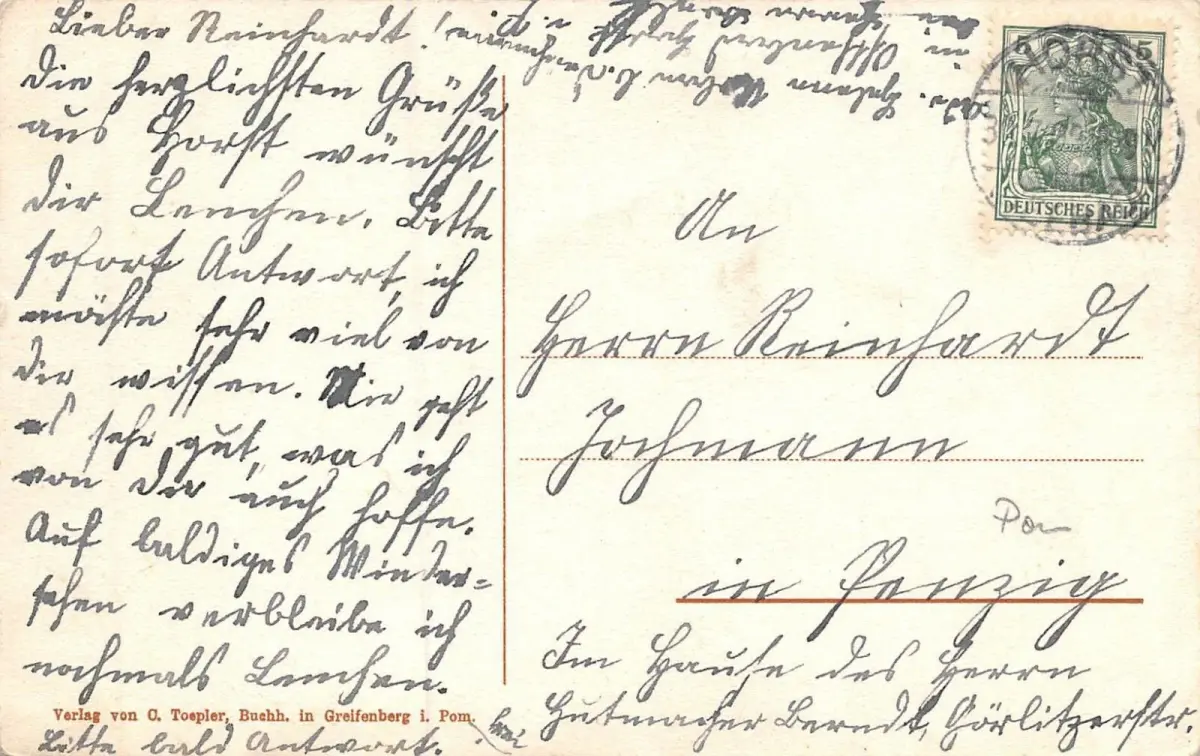 Lieber Reinhardt!
Die herzlichsten Grüße
aus Horst wünscht
dir Lenchen. Bitte
sofort Antwort, ich
möchte sehr viel von
dir wissen. Mir geht
es sehr gut, was ich
von dir auch hoffe.
Auf baldiges Wieder=
sehen verbleibe ich
nochmals Lenchen.
Verlag von C. Toepler, Buchh. in Greifenberg i. Pom.
Bitte bald Antwort.
in
5
DEUTSCHES REICH
An
Herrn Reinhardt
Jochmann
Pom
in Penzig
Im Hause des Herrn
Hutmacher Berndt, Görlitzerstr.